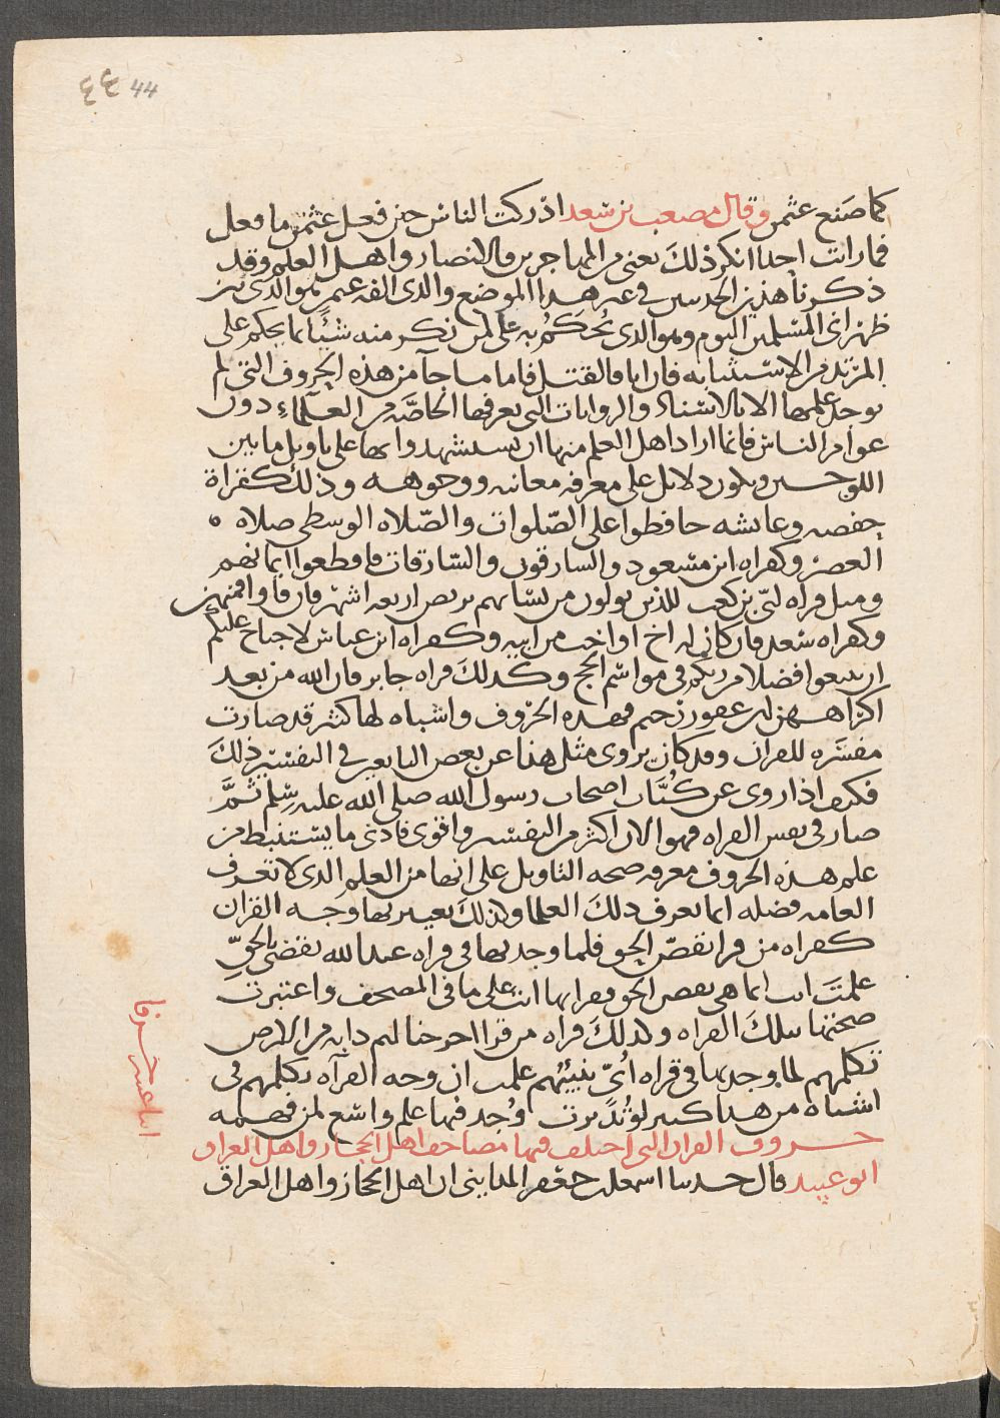 ٤٤ 44
كما صنع عثمن وقال مصعب بن سعد ادركت الناس حين فعل عثمن ما فعل
فما رايت احدا انكر ذلك يعني من المهاجرين والانصار واهل العلم وقد
ذكرنا هذين الحديثين في غير هذا الموضع والذي الفه عثمن هو الذي بين
ظهراني المسلمين اليوم وهو الذي يُحكَمُ به على من انكر منه شيئًا بما يحكم على
المرتد من الاستتابه فان ابا فالقتل فاما ما جآ من هذه الحروف التي لم
يوجد علمها الا بالاسناد والروايات التي يعرفها الخاصّه من العلماءِ دون
عوام الناس فانما اراد اهل العلم منها ان يستشهدوا بها على تاويل ما بين
اللوحين ويكون دلايل على معرفه معانيه ووجوهه وذلك كقراة
حفصه وعائشه حافظوا على الصّلوات والصّلاه الوسطى صلاه ه
العصر وكقراه ابن مسعود والسارقون والسّارقات فاقطعوا ايمانهم
ومثل قراه ابيّ بن كعب للذين يولون من نسايهم تربص اربعه اشهر فان فاوا فيهن
وكقراه سعد فان كان له اخ او اخت من ابيه وكقراه ابن عباس لا جناح عليكم
ان تبتغوا فضلا من ربكم في مواسم الحج وكذلك قراه جابر فان الله من بعد
اكراههن لهن غفور رحيم فهذه الحروف واشباه لها كثير قد صارت
مفسّره للقران وقد كان يروى مثل هذا عن بعض التابعين في التفسير ذلك
فكيف اذا روي عن كُبَّار اصحاب رسول الله صلى الله عليه وسلم ثمَّ
صار في نفس القراه فهو الان اكثر من التفسير واقوى فادنى ما يستنبط من
علم هذه الحروف معرفه صحه التاويل على انها من العلم الذي لا تعرف
العامه فضله انما يعرف ذلك العلما وكذلك يعتبر بها وجه القران
كقراه من قرا يقصّ الحق فلما وجدتها في قراه عبد الله يقضي بالحقّ
علمتَ انت انما هي يقضي الحق فقراتها انت على ما في المصحف واعتبرت
صحتها بتلك القراه وكذلك قراه من قرا اخرجنا لهم دابه من الارض
تكلمهم لما وجدتها في قراه اُبيّ تنبيئهم علمت ان وجه القرآه تكلمهم في
اشباه من هذا كثير لو تُدُبّرت وُجد فيها علم واسع لمن فهمه
حروف القران التي اختلف فيها مصاحف اهل الحجاز واهل العراق
ابو عبيد قال حدثنا اسمعيل بن جعفر المدايني ان اهل الحجاز واهل العراق
اثنا عشر حرفا